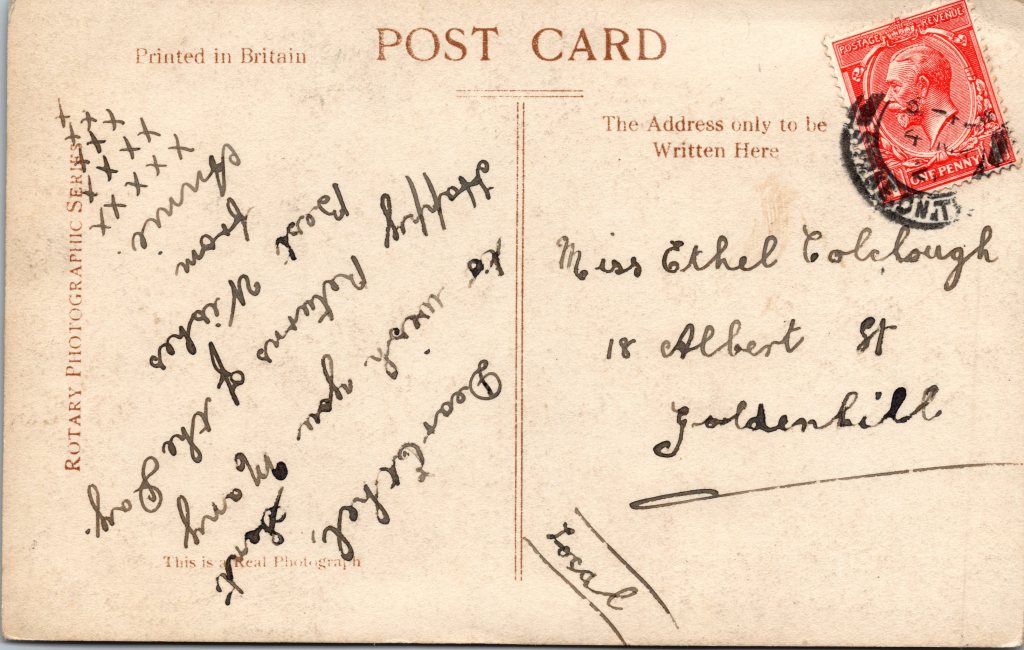 Printed in Britain
POST CARD
ROTARY PHOTOGRAPHIC SERIES
This is a Real Photograph
Dear Ethel,
Just
to wish you Many
Happy Returns of the Day.
Best Wishes
from
Annie
x x x x
x x x x
x x x x
x x x x
The Address only to be
Written Here
Miss Ethel Colclough
18 Albert St
Goldenhill
Local
POSTAGE REVENUE
ONE PENNY